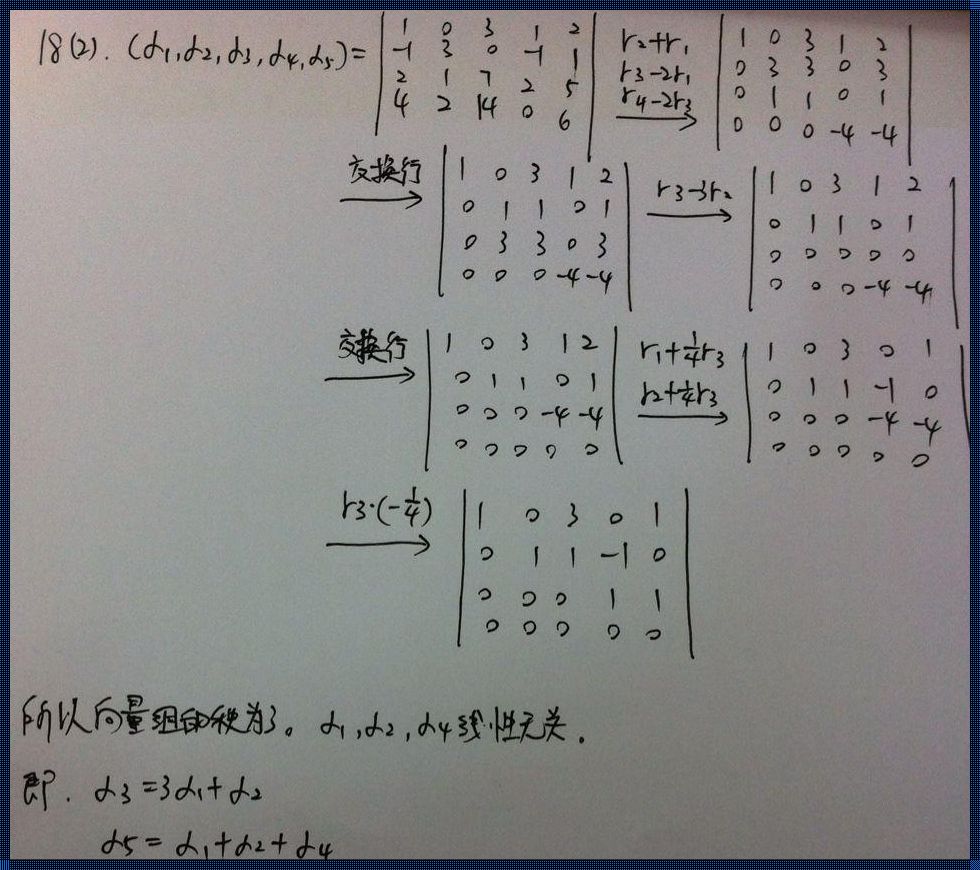 18(2). (α1,α2,α3,α4,α5)=
1 0 3 1 2
-1 3 0 -1 1
2 1 7 2 5
4 2 14 0 6
r2+r1
r3-2r1
r4-2r3
1 0 3 1 2
0 3 3 0 3
0 1 1 0 1
0 0 0 -4 -4
交换行
1 0 3 1 2
0 1 1 0 1
0 3 3 0 3
0 0 0 -4 -4
r3-3r2
1 0 3 1 2
0 1 1 0 1
0 0 0 0 0
0 0 0 -4 -4
交换行
1 0 3 1 2
0 1 1 0 1
0 0 0 -4 -4
0 0 0 0 0
r1+1/4r3
r2+1/4r3
1 0 3 0 1
0 1 1 -1 0
0 0 0 -4 -4
0 0 0 0 0
r3·(-1/4)
1 0 3 0 1
0 1 1 -1 0
0 0 0 1 1
0 0 0 0 0
所以向量组的秩为3。α1,α2,α4线性无关.
即. α3=3α1+α2
α5=α1+α2+α4